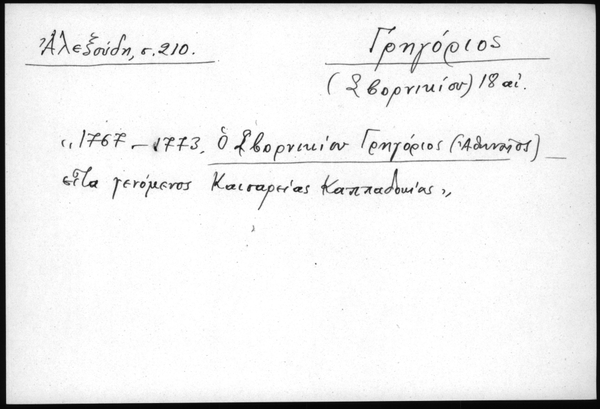 Ἀλεξούδη, σ. 210.
Γρηγόριος
(Σβορνικίου) 18 αἰ.
„ 1767 – 1773. Ὁ Σβορνικίου Γρηγόριος (Ἀθηναῖος) –
εἶτα γενόμενος Καισαρείας Καππαδοκίας „